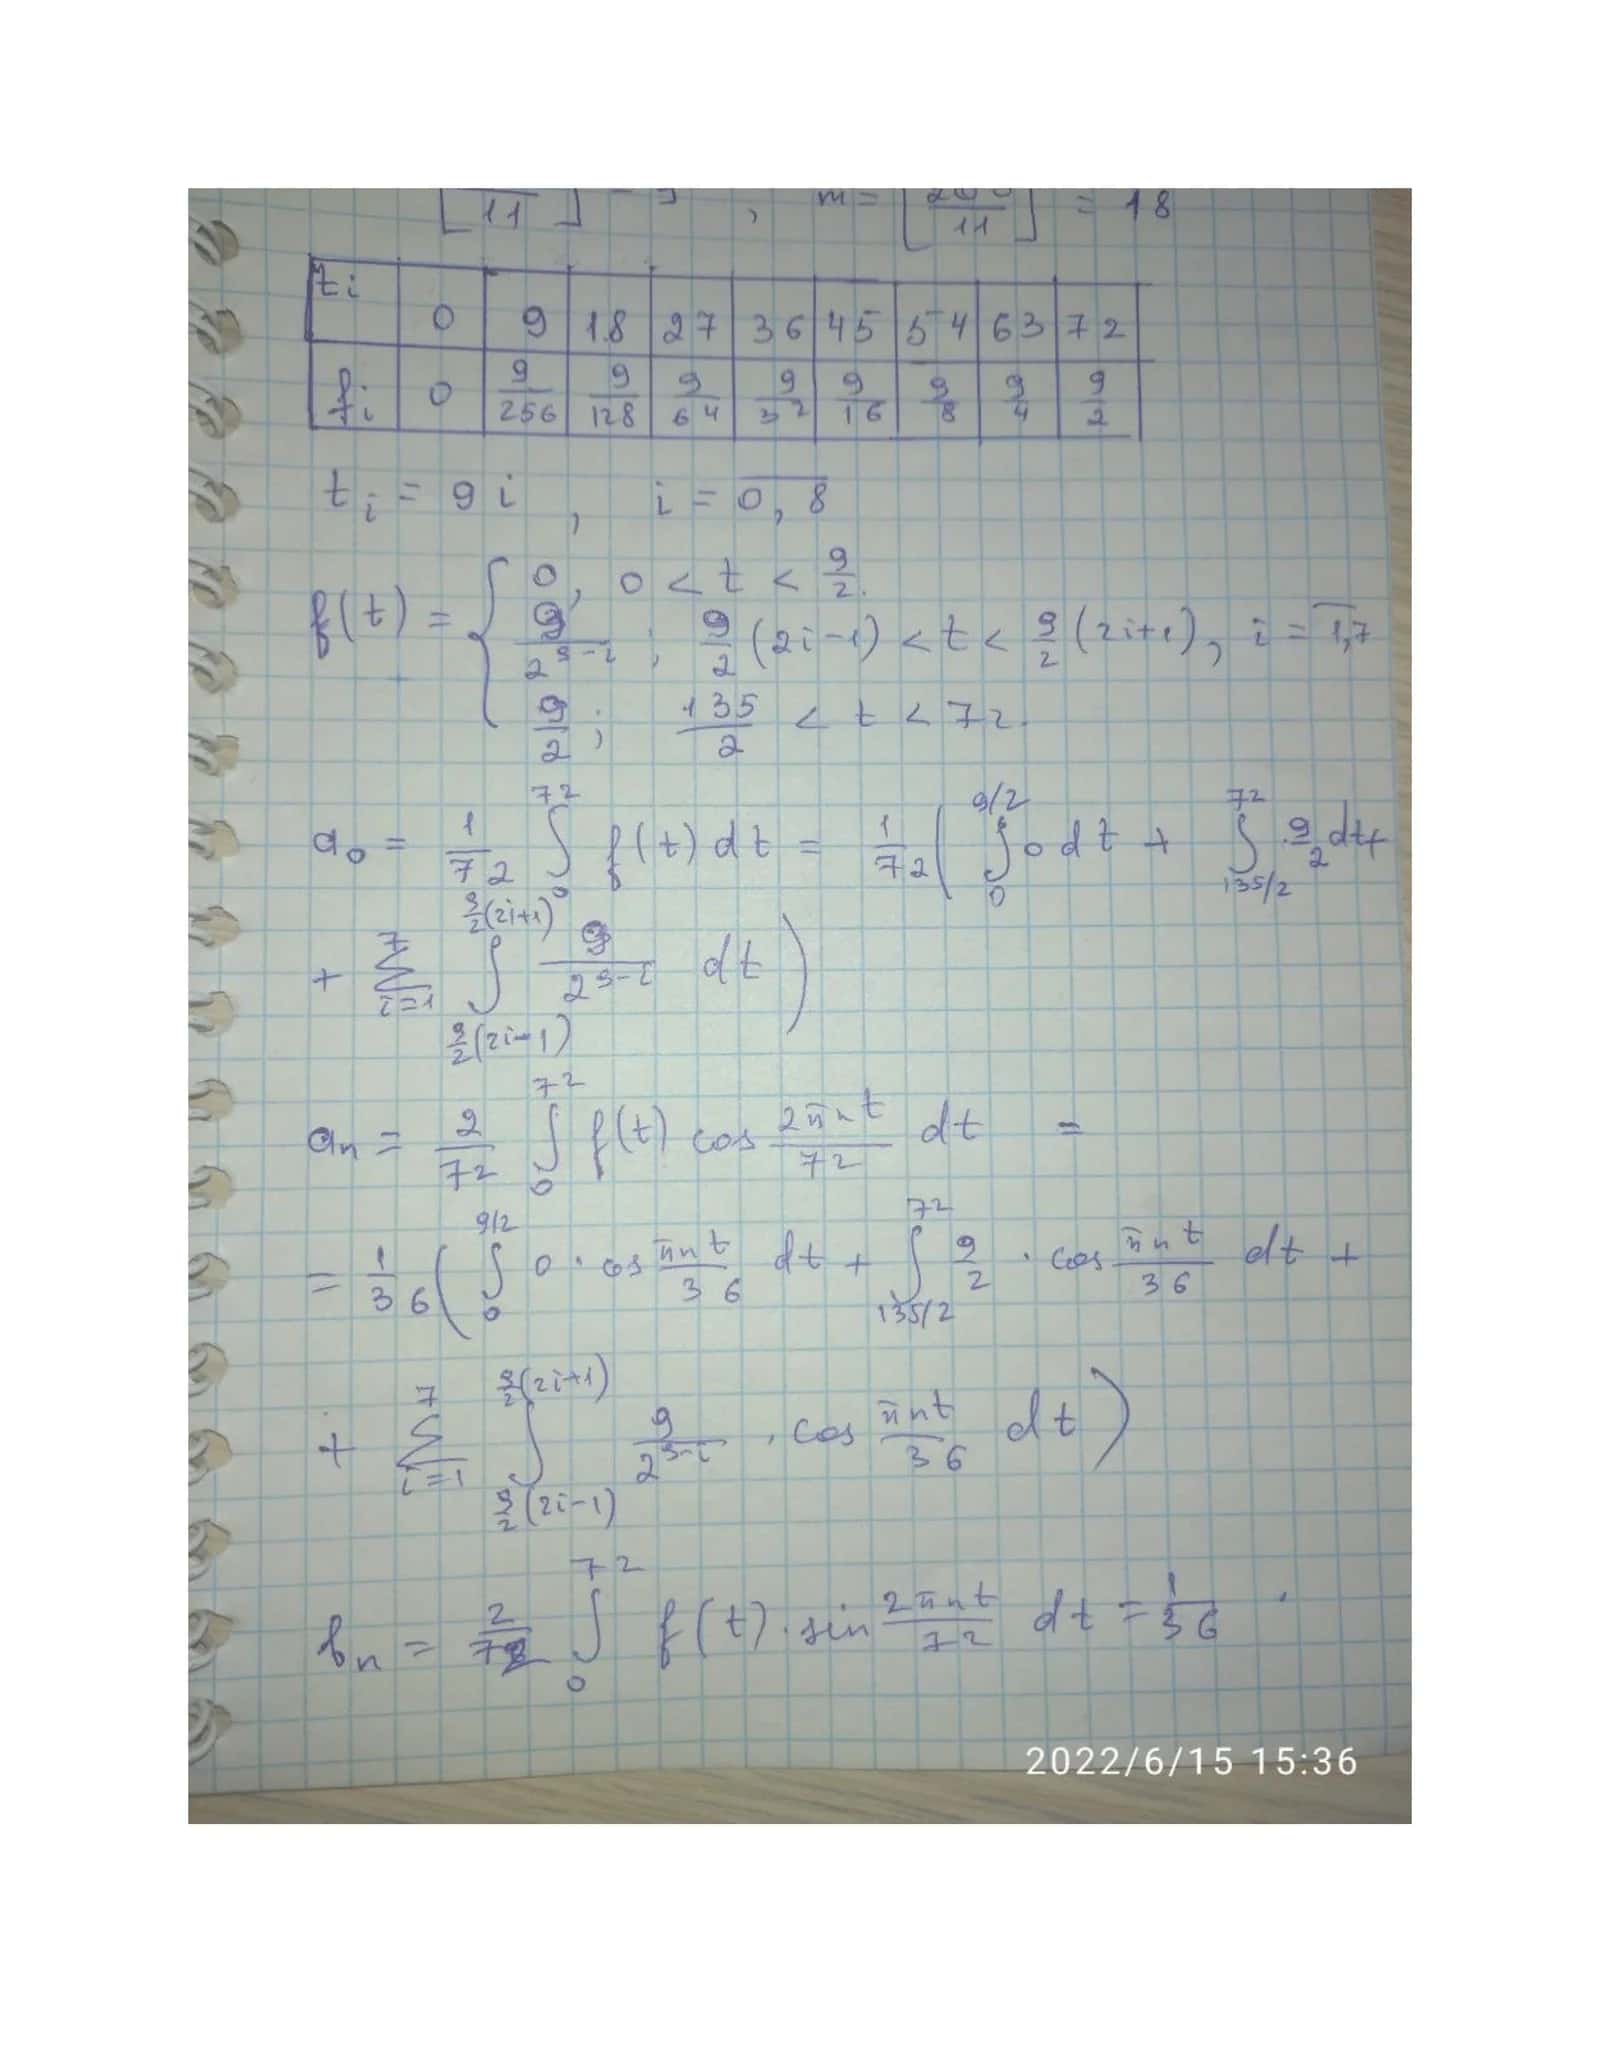 [ /11 ] , m = [ 200/11 ] = 18
t_i 0 9 18 27 36 45 54 63 72
f_i 0 9/256 9/128 9/64 9/32 9/16 9/8 9/4 9/2
t_i = 9i , i = \overline{0,8}
f(t) = { 0, 0 < t < 9/2.
9/2^{9-i} ; 9/2 (2i-1) < t < 9/2 (2i+1), i = \overline{1,7}
9/2 ; 135/2 < t < 72.
a_0 = 1/72 ∫_0^{72} f(t) dt = 1/72 ( ∫_0^{9/2} 0 dt + ∫_{135/2}^{72} 9/2 dt +
+ Σ_{i=1}^{7} ∫_{9/2(2i-1)}^{9/2(2i+1)} 9/2^{9-i} dt )
a_n = 2/72 ∫_0^{72} f(t) cos 2πnt/72 dt =
= 1/36 ( ∫_0^{9/2} 0 · cos πnt/36 dt + ∫_{135/2}^{72} 9/2 · cos πnt/36 dt +
+ Σ_{i=1}^{7} ∫_{9/2(2i-1)}^{9/2(2i+1)} 9/2^{9-i} · cos πnt/36 dt )
b_n = 2/72 ∫_0^{72} f(t) · sin 2πnt/72 dt = 1/36 ·
2022/6/15 15:36